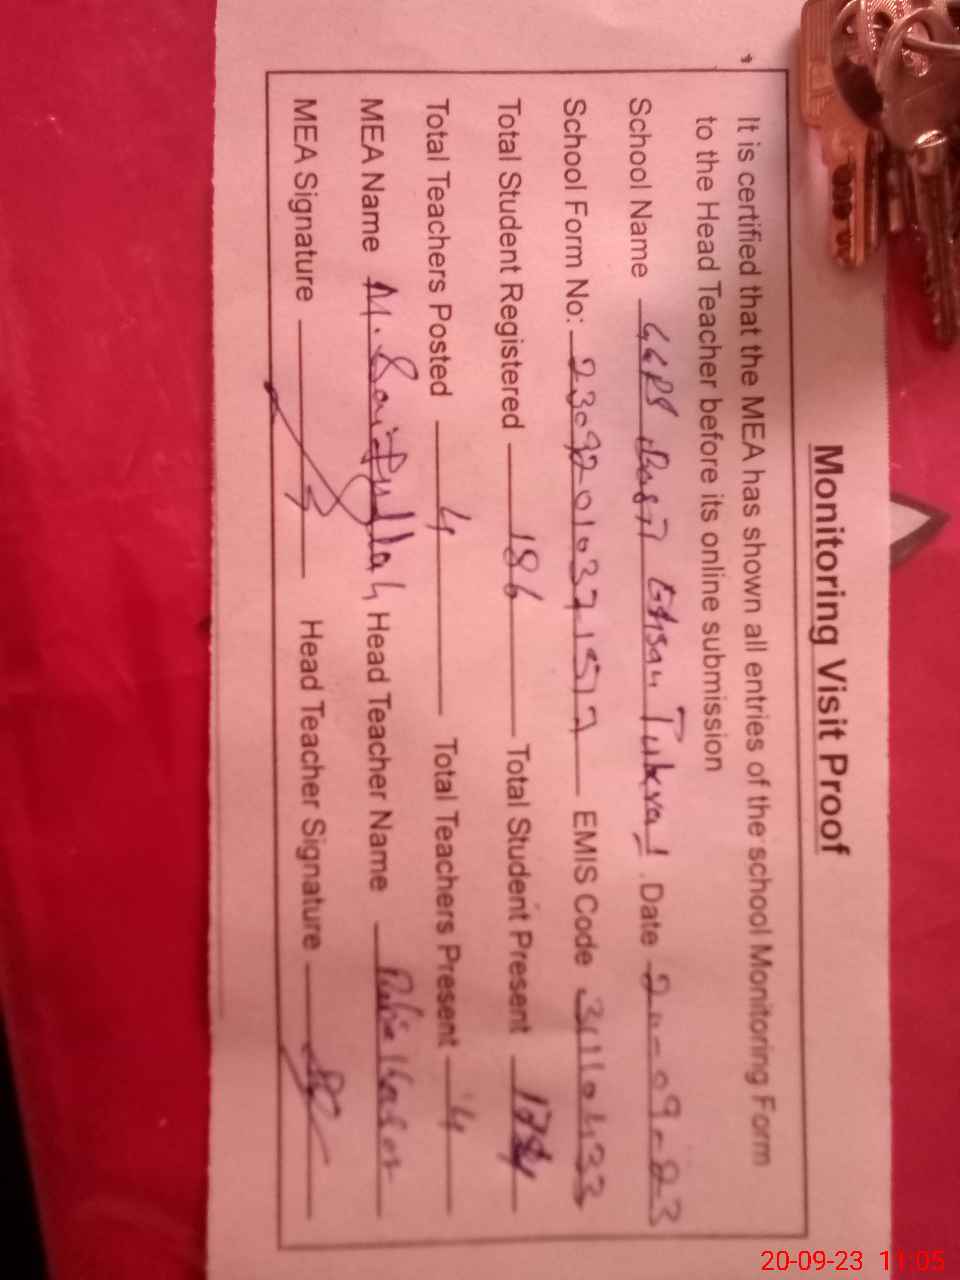 Monitoring Visit Proof
* It is certified that the MEA has shown all entries of the school Monitoring Form
to the Head Teacher before its online submission
School Name GGPS Ehsan Date 20-09-23
School Form No: EMIS Code 31110433
Total Student Registered 186 Total Student Present
Total Teachers Posted 4 Total Teachers Present 4
MEA Name M. Head Teacher Name
MEA Signature Head Teacher Signature
20-09-23 11:05